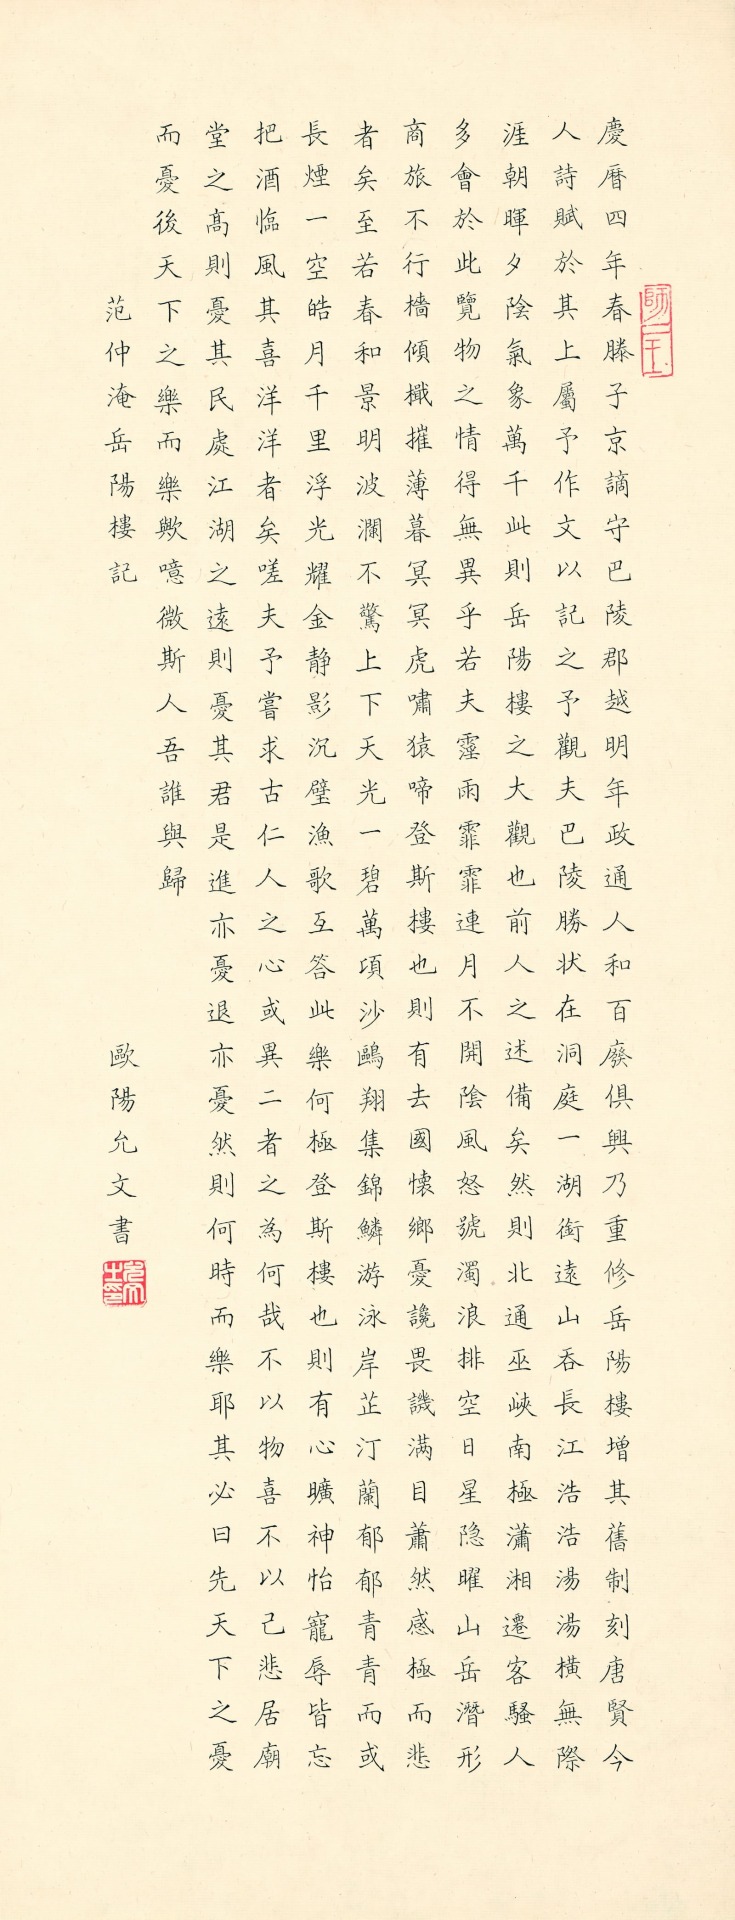 慶曆四年春滕子京謫守巴陵郡越明年政通人和百廢俱興乃重修岳陽樓增其舊制刻唐賢今
人詩賦於其上屬予作文以記之予觀夫巴陵勝狀在洞庭一湖銜遠山吞長江浩浩湯湯橫無際
涯朝暉夕陰氣象萬千此則岳陽樓之大觀也前人之述備矣然則北通巫峽南極瀟湘遷客騷人
多會於此覽物之情得無異乎若夫霪雨霏霏連月不開陰風怒號濁浪排空日星隐曜山岳潛形
商旅不行檣傾檝摧薄暮冥冥虎嘯猿啼登斯樓也則有去國懷鄉憂讒畏譏满目蕭然感極而悲
者矣至若春和景明波瀾不驚上下天光一碧萬頃沙鷗翔集錦鱗游泳岸芷汀蘭郁郁青青而或
長煙一空皓月千里浮光耀金静影沉璧漁歌互答此樂何極登斯樓也則有心曠神怡寵辱皆忘
把酒臨風其喜洋洋者矣嗟夫予嘗求古仁人之心或異二者之為何哉不以物喜不以己悲居廟
堂之高則憂其民處江湖之遠則憂其君是進亦憂退亦憂然則何時而樂耶其必曰先天下之憂
而憂後天下之樂而樂歟噫微斯人吾誰與歸
范仲淹岳陽樓記
歐陽允文書